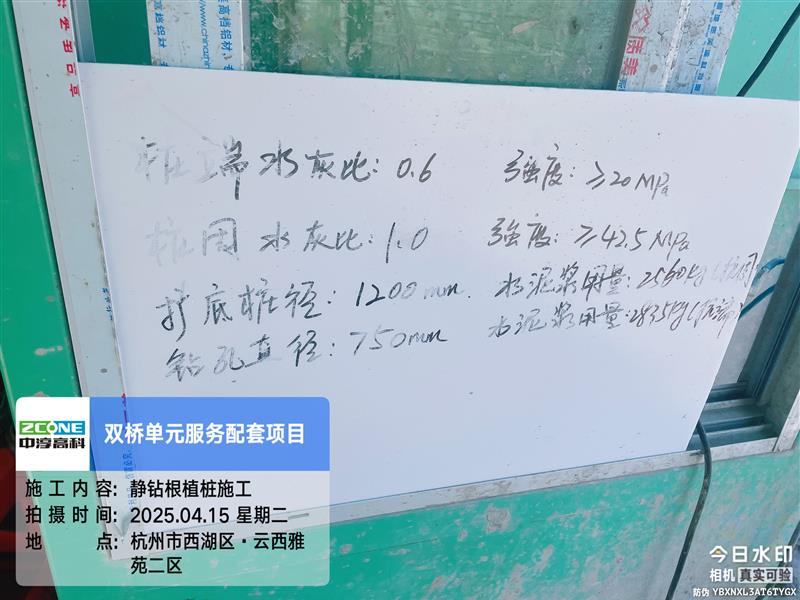 高档铝材
www.chinazhe
质美
桩端水灰比: 0.6 强度: ≥20MPa
桩周水灰比: 1.0 强度: ≥42.5MPa
扩底桩径: 1200mm. 水泥浆用量: 2560kg (桩周
钻孔直径: 750mm 水泥浆用量: 2835kg (桩端
ZCONE
中淳高科
双桥单元服务配套项目
施工内容: 静钻根植桩施工
拍摄时间: 2025.04.15 星期二
地 点: 杭州市西湖区·云西雅
苑二区
今日水印
相机 真实可验
防伪 YBXNXL3AT6TYGX